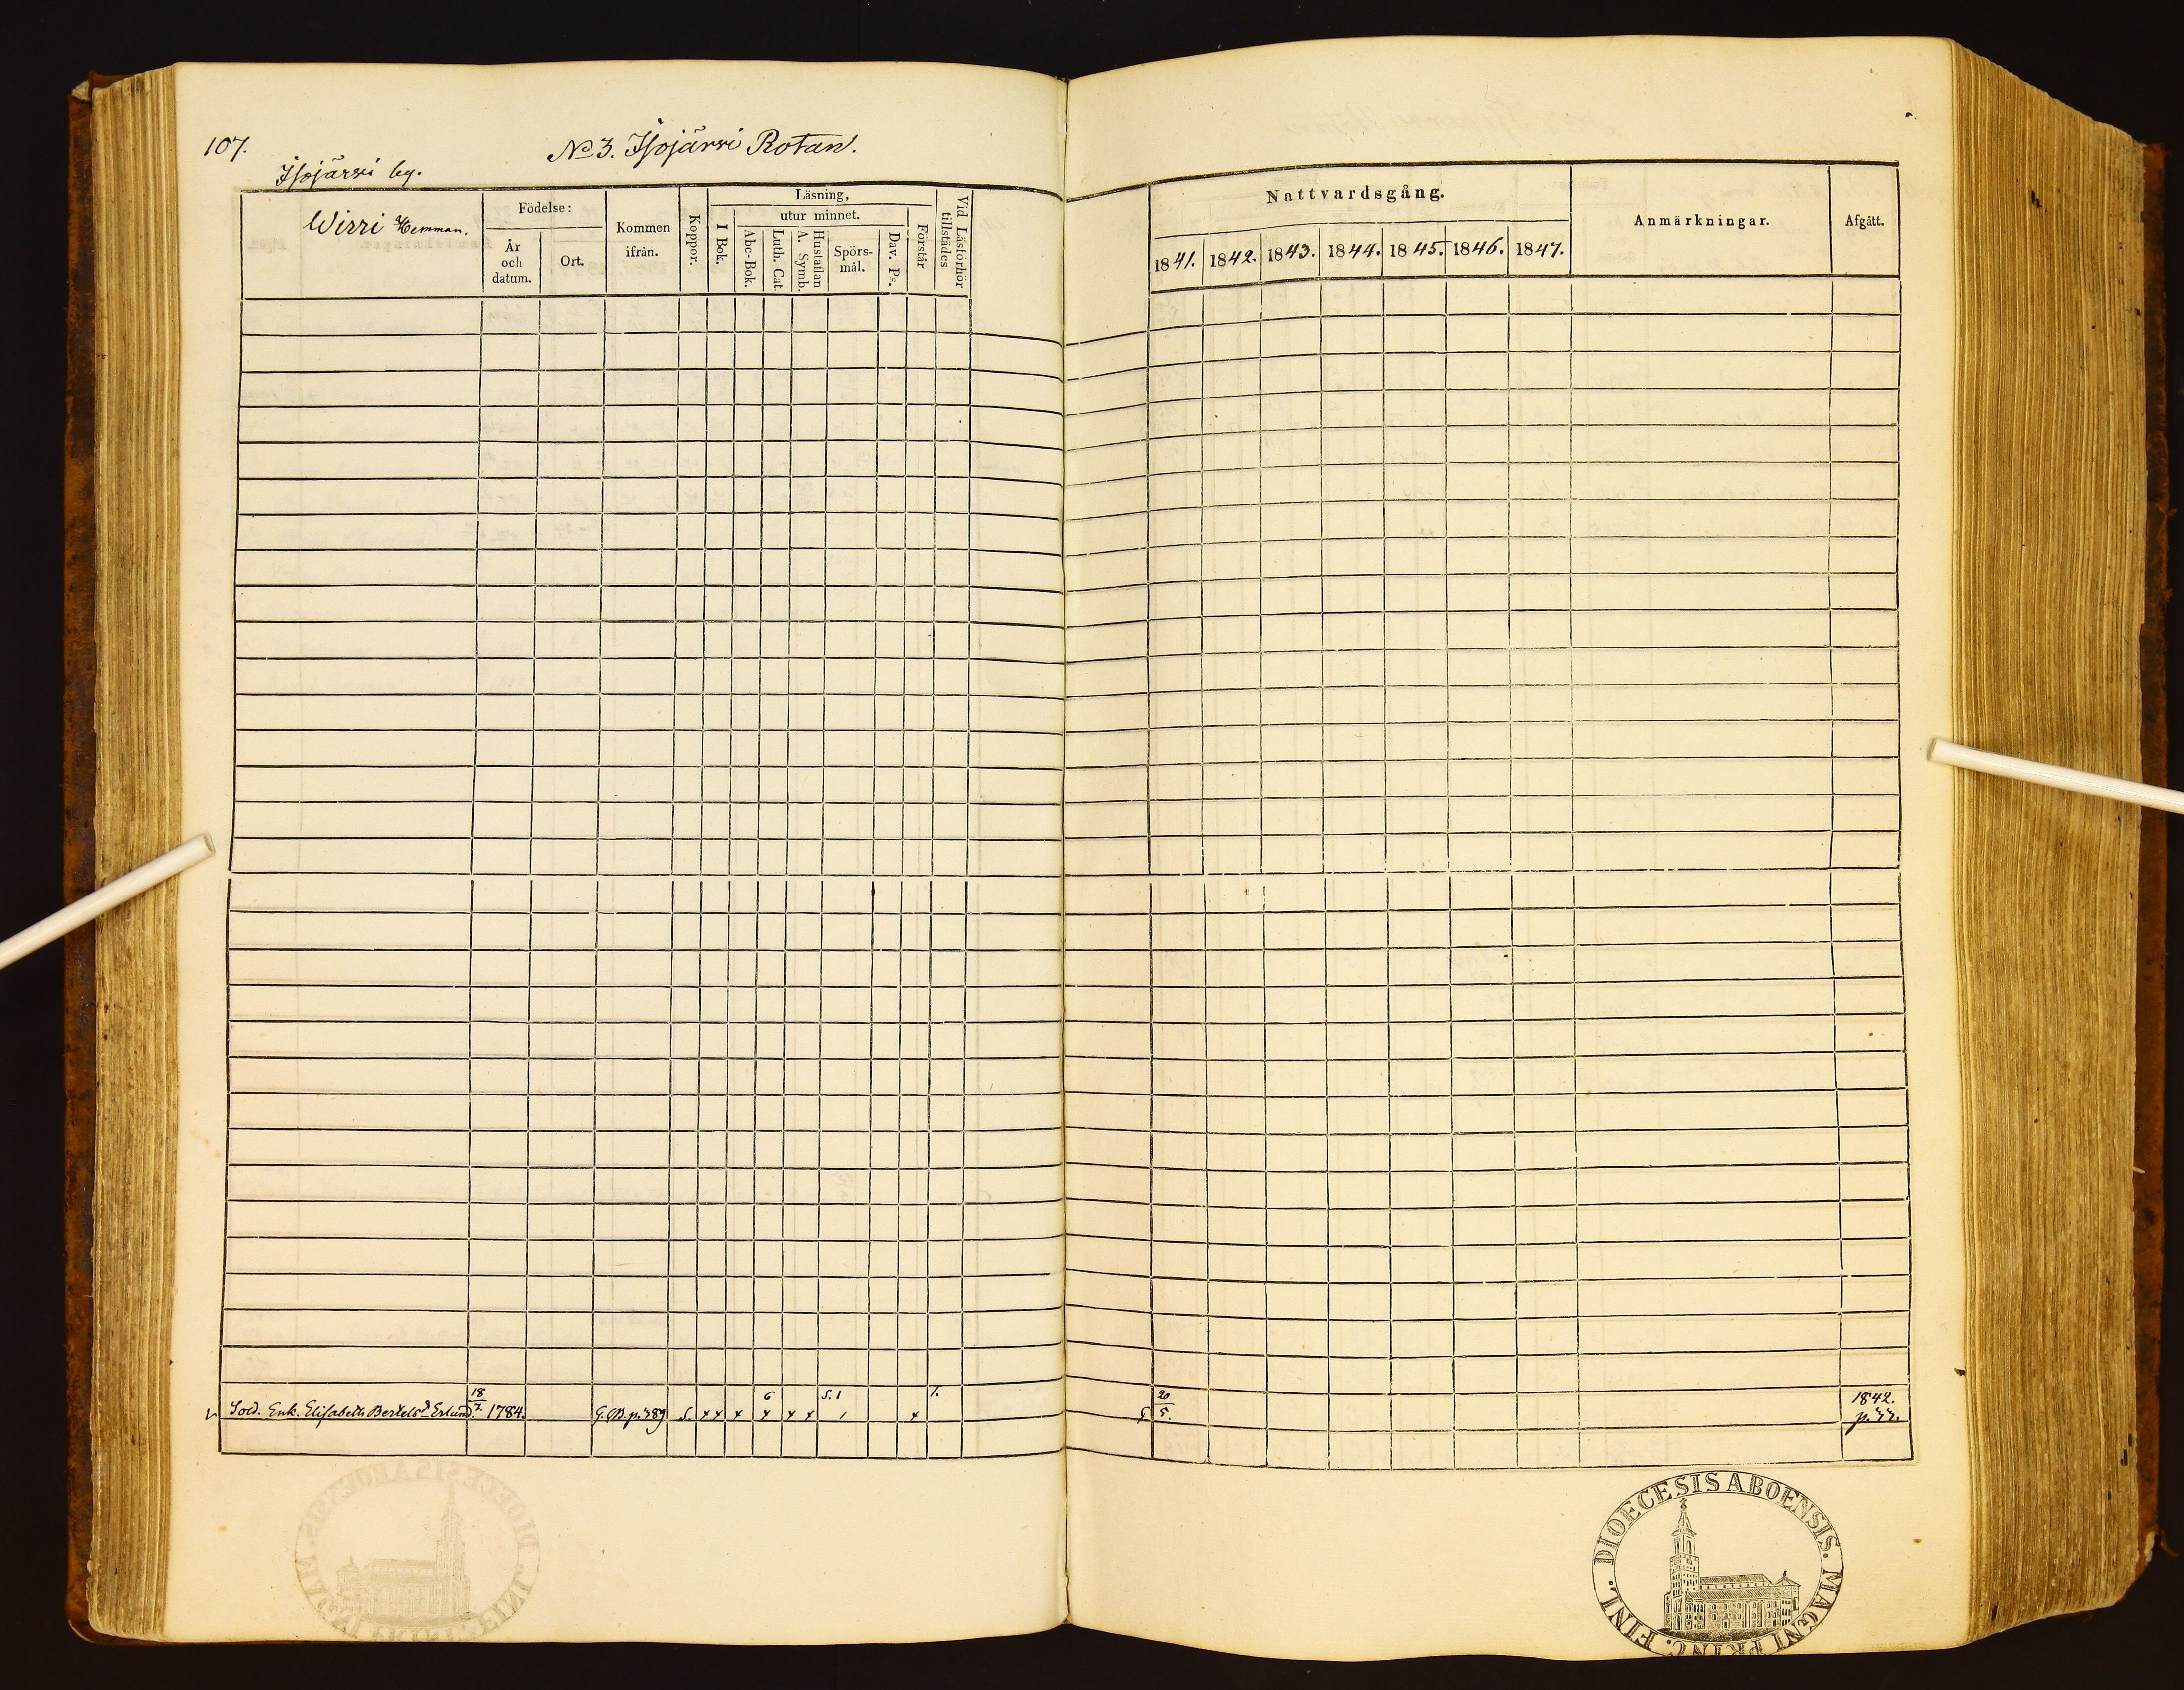 107.
No 3. Isojärvi Rotan.
Isojärvi by.
Wirri Hemman.
Födelse:
År och datum.
Ort.
Kommen ifrån.
Koppor.
Läsning,
I Bok.
utur minnet.
Abc-Bok.
Luth. Cat.
Hustaflan A. Symb.
Spörs-mål.
Dav. Ps.
Förstår
Vid Läsförhör tillstädes
Nattvardsgång.
1841. 1842. 1843. 1844. 1845. 1846. 1847.
Anmärkningar.
Afgått.
18 6 S. 1 1. 20 1842.
v Sold. Enk. Elisabeth Bertelsd Erlund. 7. 1784. G.B. p. 389 S. x x x x x x 1 x G 5.
DIOECESIS ABOENSIS. MAGNI PRINC. FINL.